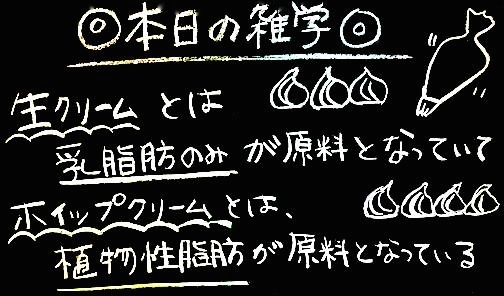 ◎本日の雑学◎
生クリームとは
乳脂肪のみが原料となっていて
ホイップクリームとは、
植物性脂肪が原料となっている